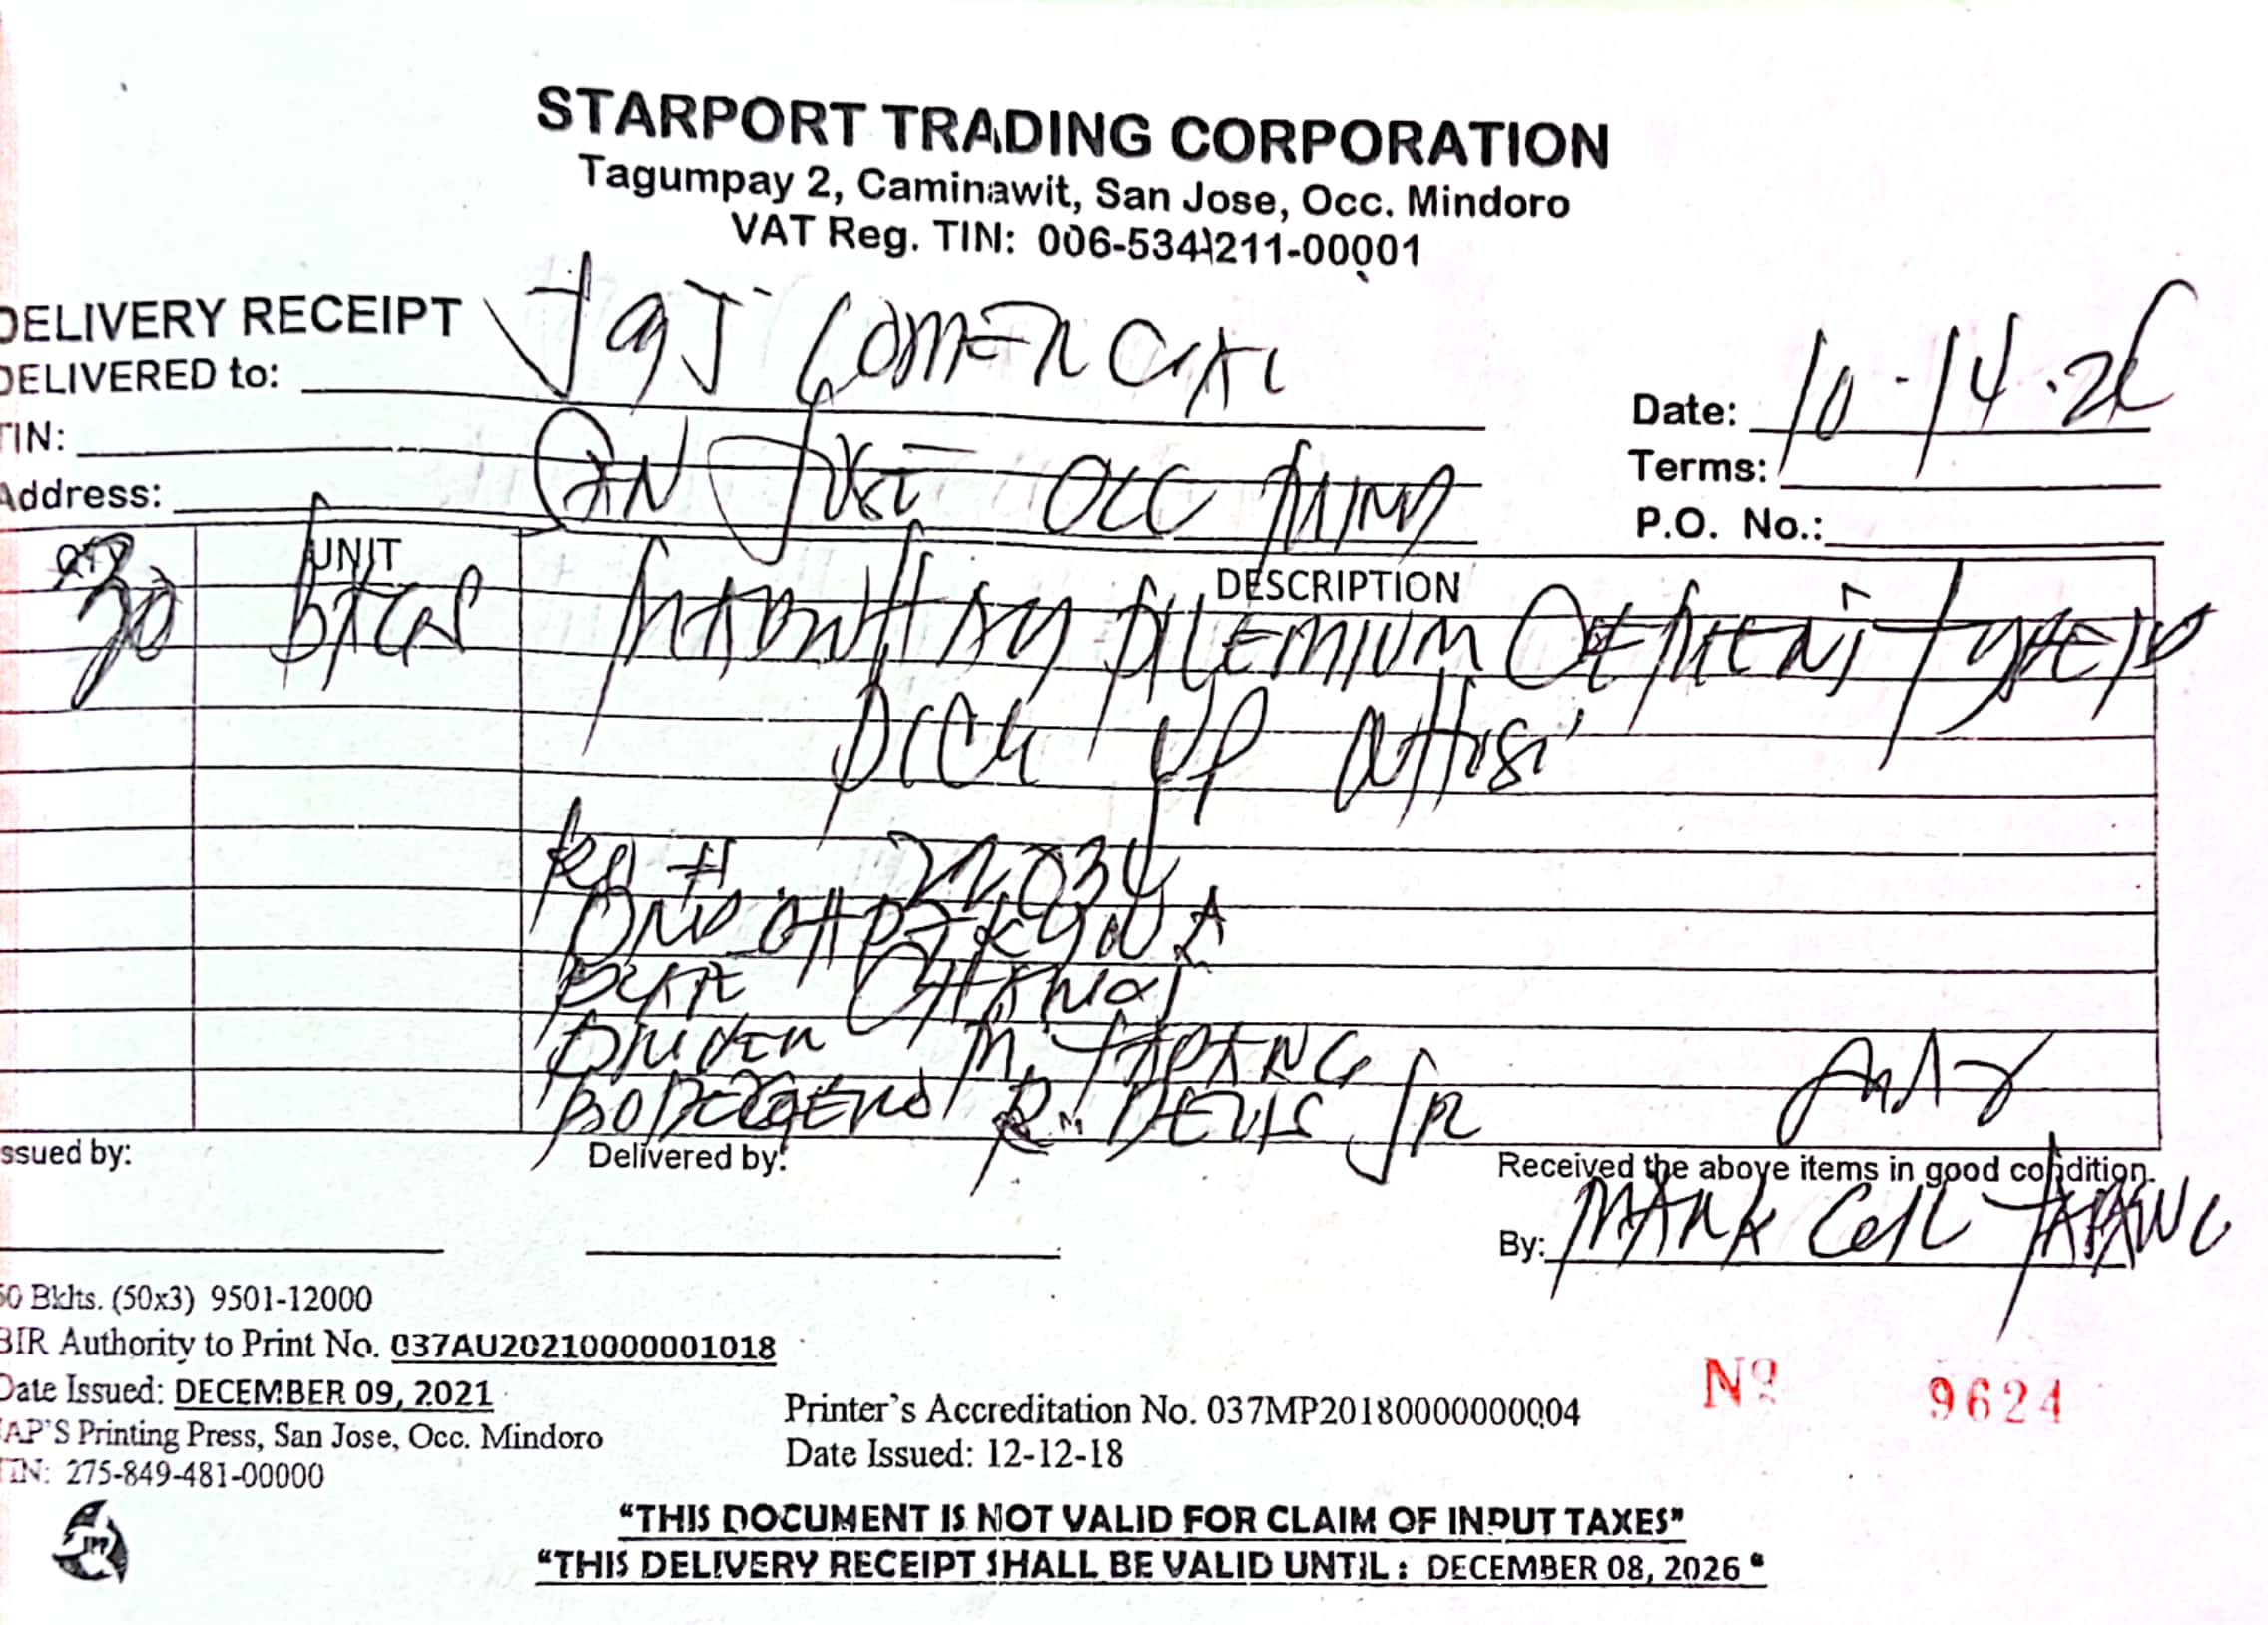 STARPORT TRADING CORPORATION
Tagumpay 2, Caminawit, San Jose, Occ. Mindoro
VAT Reg. TIN: 006-534-211-00001
DELIVERY RECEIPT
DELIVERED to: JgJ COMERCIAL
TIN:
Address: SAN JOSE OCC MIN
Date: 10-14-
Terms:
P.O. No.:
QTY UNIT DESCRIPTION
30 BAGS PREMIUM CEMENT TYPE
PICK UP
# 22034
M. TAPANG
BODEGERO R. JR
Issued by: Delivered by: Received the above items in good condition.
By: MARK TAPANG
50 Bklts. (50x3) 9501-12000
BIR Authority to Print No. 037AU20210000001018
Date Issued: DECEMBER 09, 2021
AP'S Printing Press, San Jose, Occ. Mindoro
TIN: 275-849-481-00000
Printer's Accreditation No. 037MP20180000000004
Date Issued: 12-12-18
No 9624
"THIS DOCUMENT IS NOT VALID FOR CLAIM OF INPUT TAXES"
"THIS DELIVERY RECEIPT SHALL BE VALID UNTIL : DECEMBER 08, 2026"